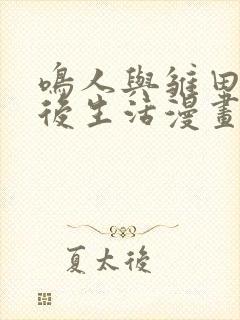 鳴人與雛田
後生活漫畫
夏太後